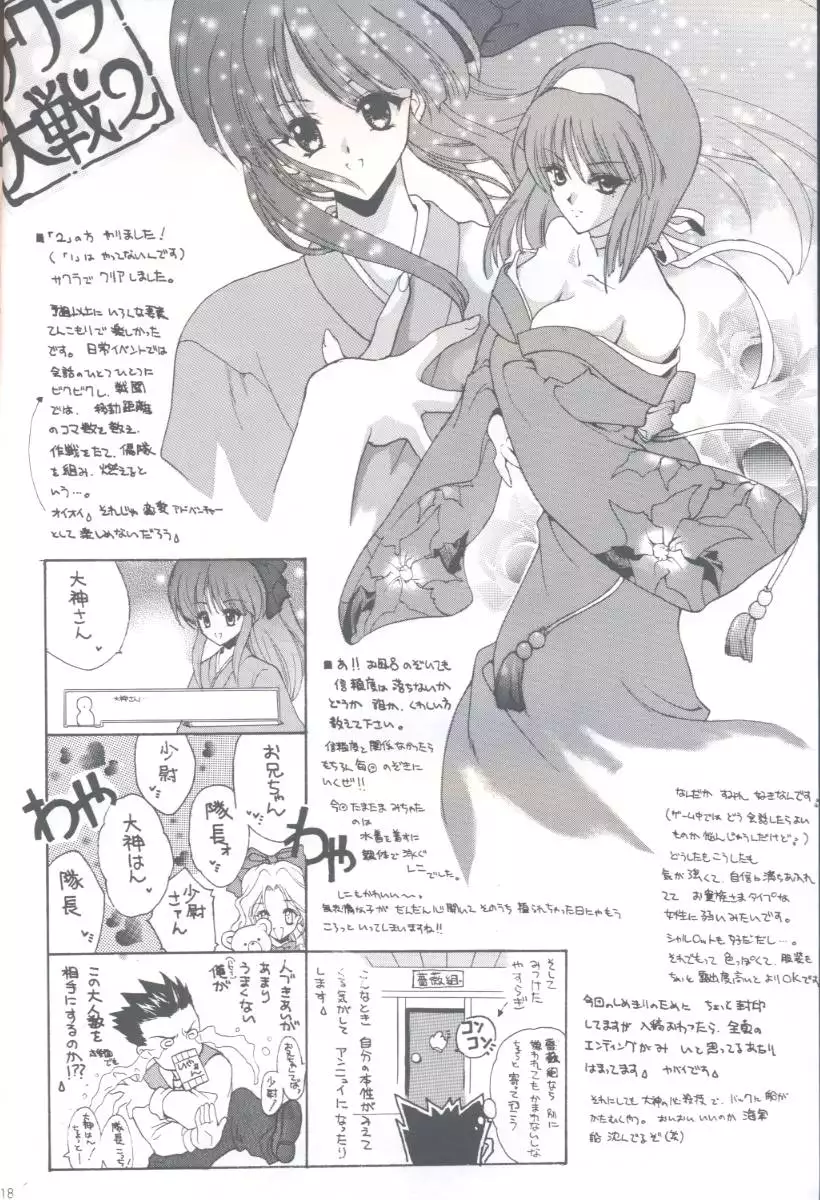 サクラ
大戦2
■「2」の方 やりました!
(「1」は やってないんです)
サクラで クリアしました。
予想以上に いろんな要素
てんこもりで 楽しかった
です。 日常イベントでは
会話のひとつひとつに
ビクビクし、戦闘
では、移動距離
のコマ数を数え、
作戦をたて、隊
を組み、燃えると
いう…。
オイオイ それじゃ 恋愛 アドベンチャー
として 楽しめないだろう
大神さん
大神さん…
お兄ちゃん
少尉
隊長ォ
大神はん
少尉さァん
隊長
わや
わや
■あ!! お風呂 のぞいても
信頼度は 落ちないか
どうか 誰か、くわしい方
教えて下さい。
信頼度と 関係なかったら
もちろん 毎回 のぞきに
いくぜ!!
今回 たまたま みちゃた
のは
水着を着ずに
裸体で 泳ぐ
レニ でした。
レニもかわいい〜。
無表情な子が だんだん 心開いて そのうち 頼られちゃった日にゃもう
ころっと いってしまいますね!!
なんだか すみれ 好きなんです
(ゲーム中では どう会話したらよい
ものか 悩んじゃうんだけど)
どうしたもこうしたも
気が強くて、自信に満ちあふれ
てて お貴族さまタイプな
女性に 弱いみたいです。
シャルロットも 好きだし…。
それでもって 色っぽくて、服装も
ちょいと 露出度高いと よりOKです
今回のしめきりのために ちょっと 封印
してますが 入稿おわったら、全員の
エンディングがみ いと思ってるあたり
はまってます ヤバイです
それにしても 大神の 必殺技で、バックに 船が
かたむくやつ。 おいおい いいのか 海軍
船 沈んでるぞ(笑)
人づきあいが
あまり
うまくない
俺が
この大人数を
相手にするのか!??
少尉!
隊長 こっち!
大神はん!
ちょっとー!
そして
みつけた
やすらぎ
薔薇組
コン
コン
薔薇組なら 別に
嫌われても かまわないしな
ちょっと 寄って行こう
こんなとき 自分の本性が みえて
くる気がして アンニュイに なったり
します
18